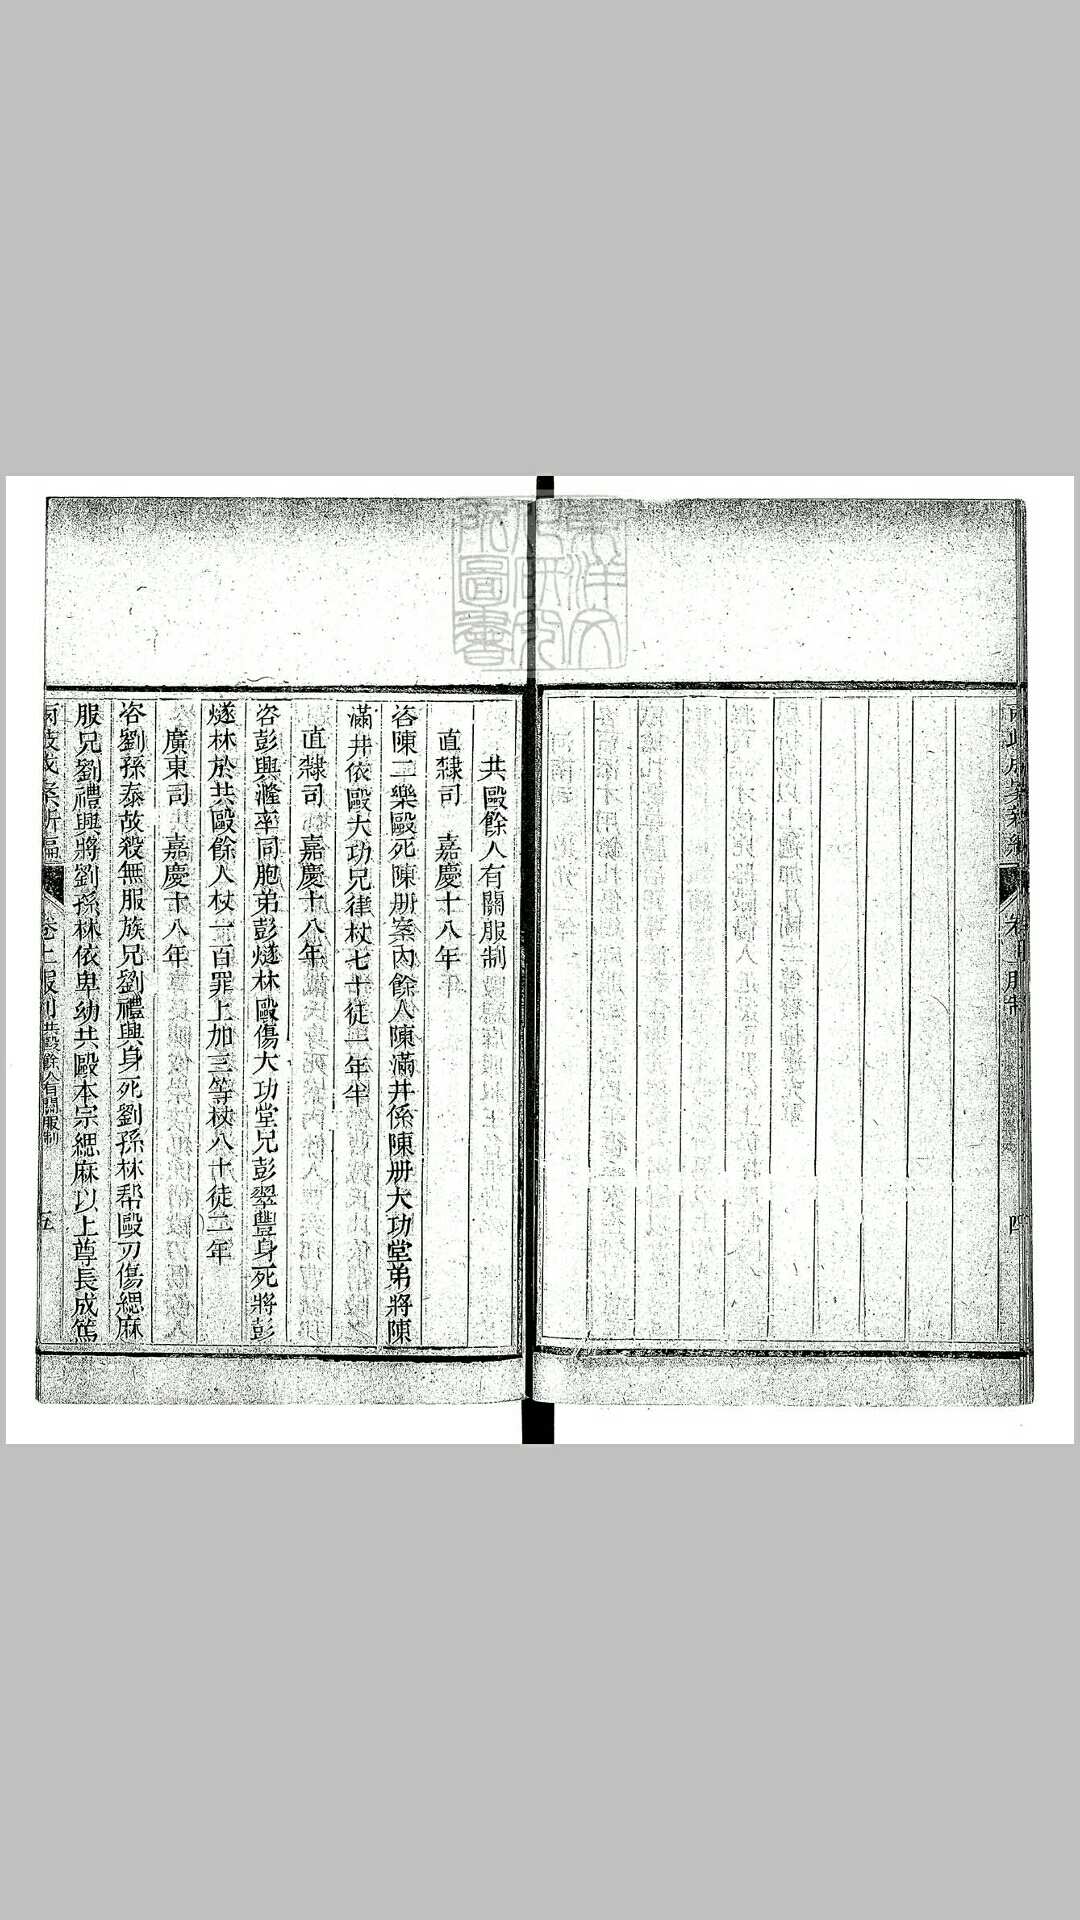 四
共毆餘人有關服制
直隸司 嘉慶十八年
咨陳二樂毆死陳册案內餘人陳滿井係陳册大功堂弟將陳
滿井依毆大功兄律杖七十徒一年半
直隸司 嘉慶十八年
咨彭興漋率同胞弟彭燧林毆傷大功堂兄彭翠豐身死將彭
燧林於共毆餘人杖一百罪上加三等杖八十徒二年
廣東司 嘉慶十八年
咨劉孫泰故殺無服族兄劉禮與身死劉孫林幫毆刃傷緦麻
服兄劉禮與將劉孫林依卑幼共毆本宗緦麻以上尊長成篤
成案新編 服制 共毆餘人有關服制 五